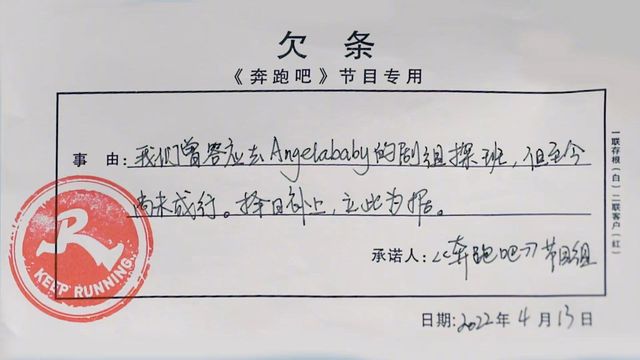 欠条
《奔跑吧》节目专用
事由:我们曾答应去Angelababy的剧组探班，但至今
尚未成行。择日补上，立此为据。
承诺人:《奔跑吧》节目组
日期:2022年4月13日
一联存根(白)二联客户(红)
R
KEEP RUNNING